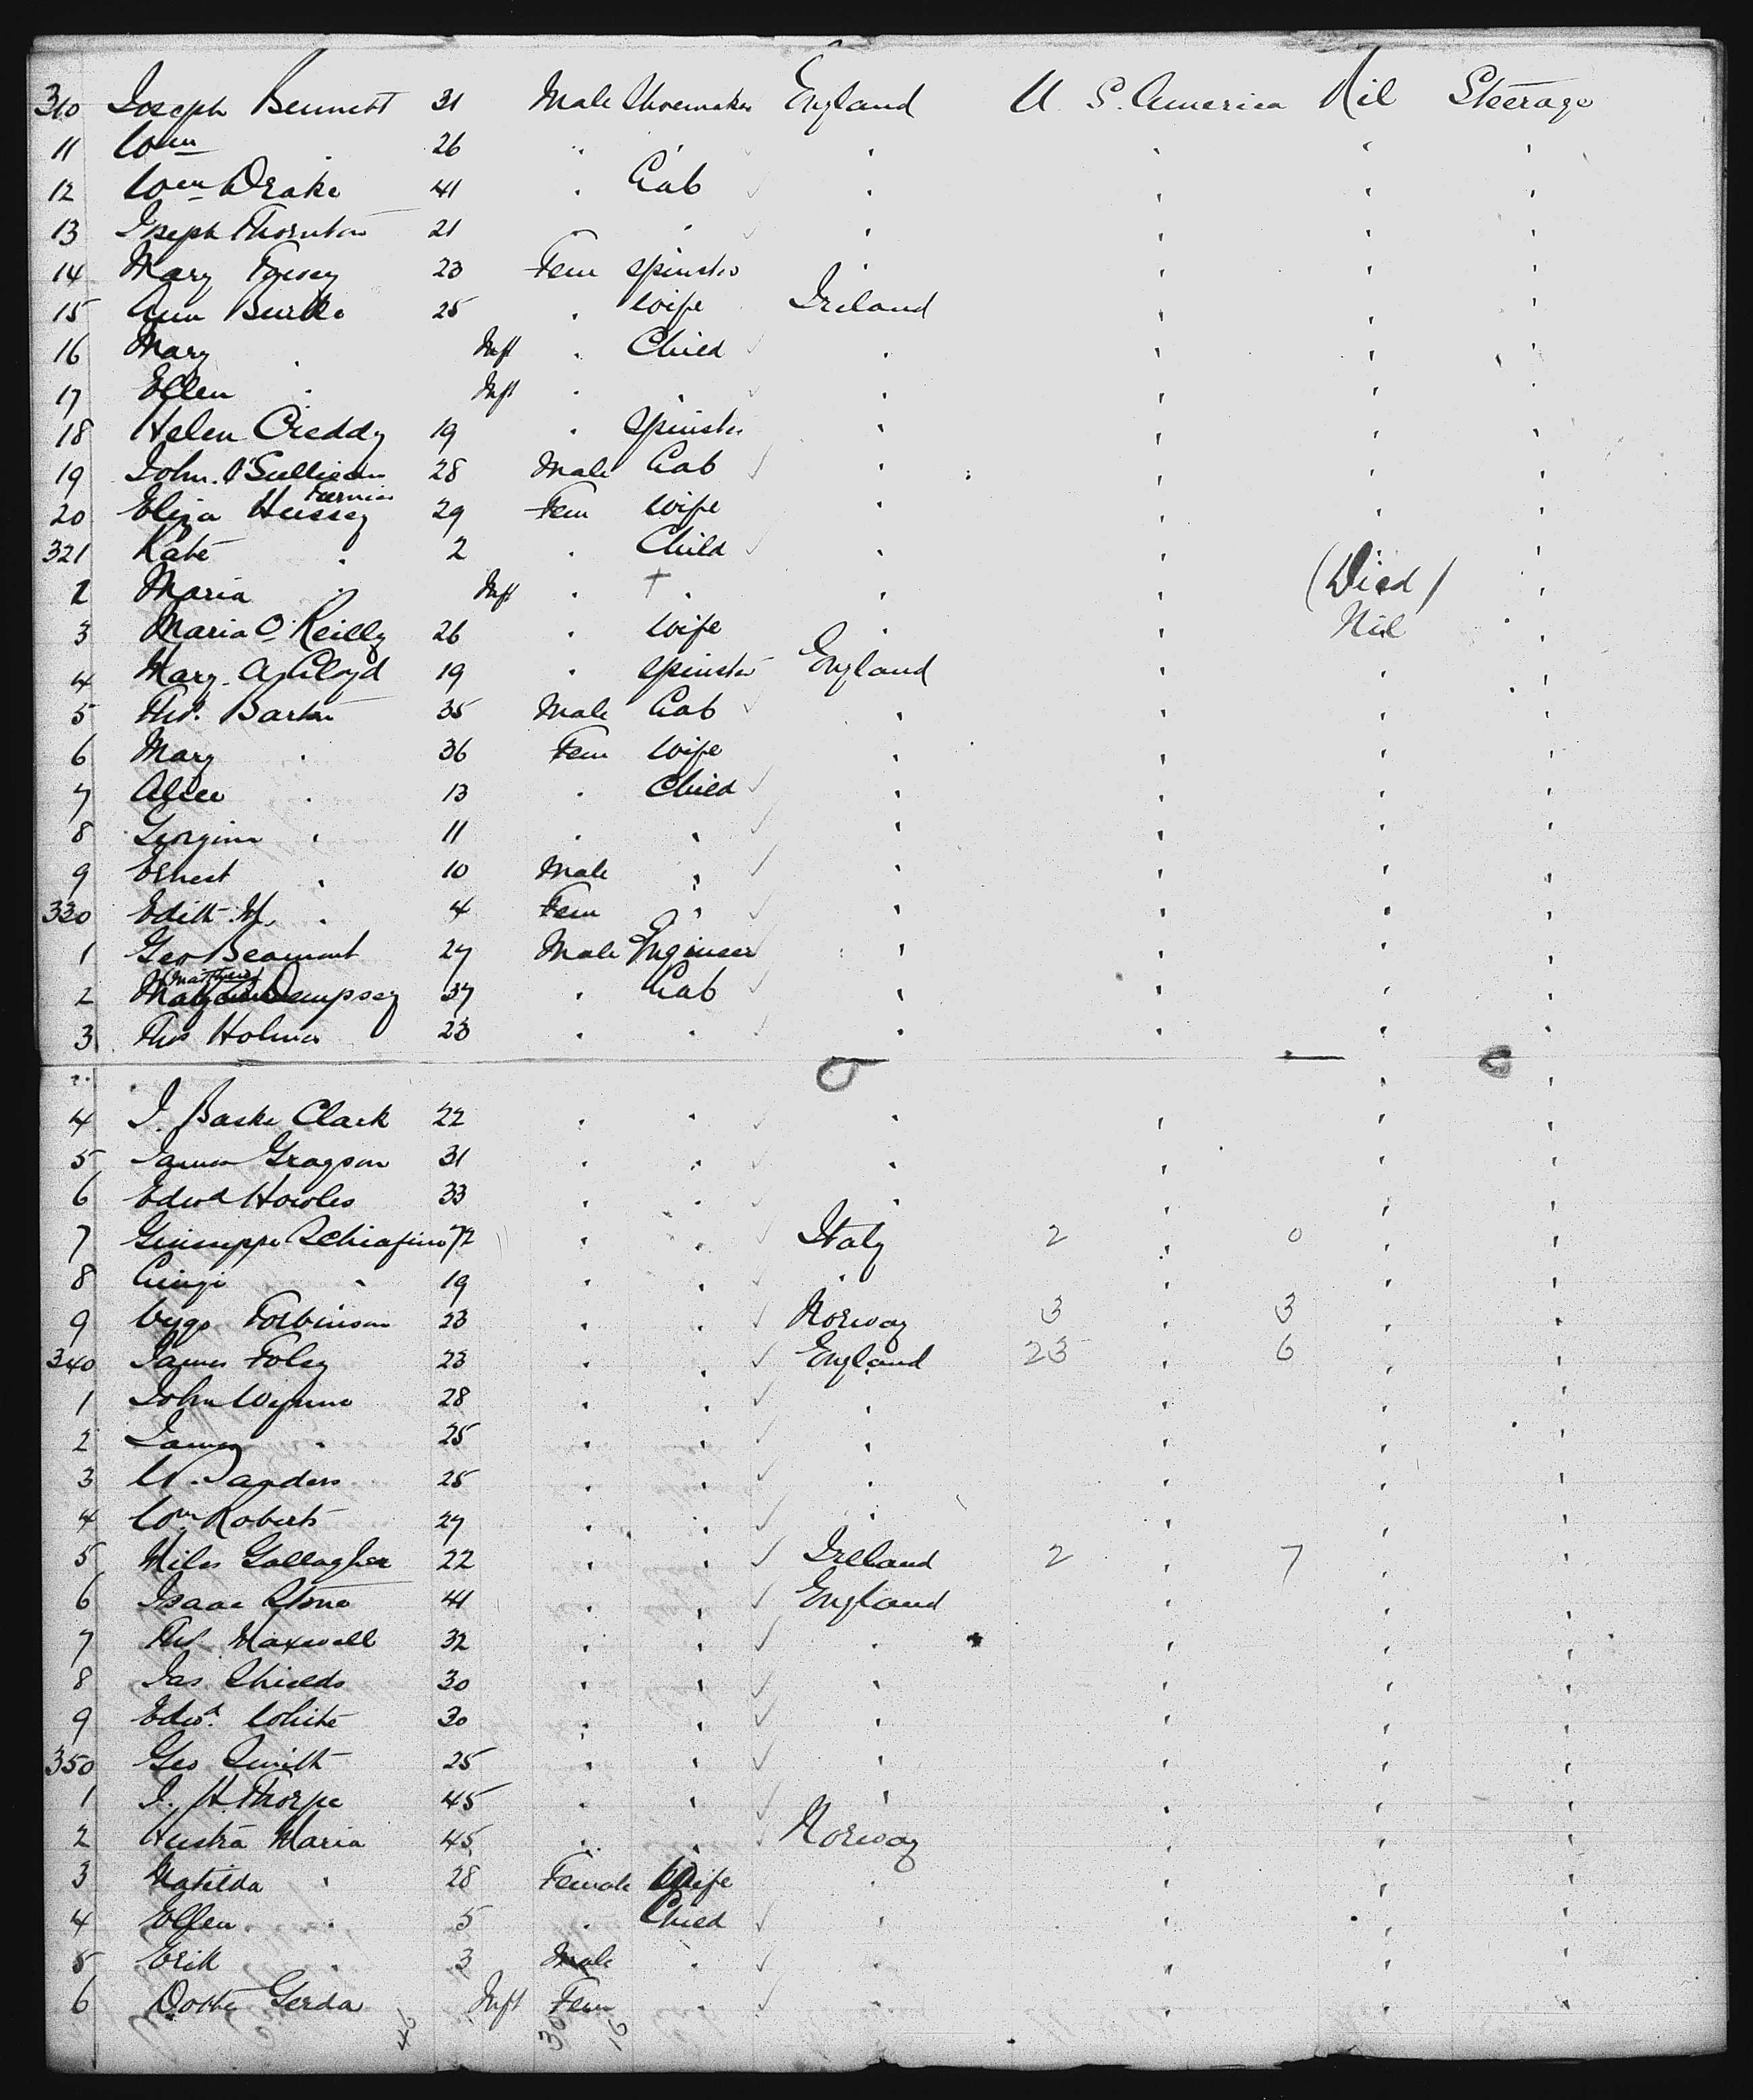 310 Joseph Bennett 31 Male Shoemaker England U. S. America Nil Steerage
11 Wm " 26 " " " " " "
12 Wm Drake 41 " Lab " " " "
13 Joseph Thornton 21 " " " " " "
14 Mary 23 Fem Spinster " " " "
15 Ann Burke 25 " Wife Ireland " " "
16 Mary " Inft " Child " " " "
17 Ellen " Inft " " " " " "
18 Helen Creddy 19 " Spinster " " " "
19 John O'Sullivan 28 Male Lab " " " "
20 Eliza Hussey 29 Fem Wife " " " "
321 Kate " 2 " Child " " "
2 Maria " Inft " + " " " (Died) "
3 Maria O'Reilly 26 " Wife " " Nil "
4 Mary A Lloyd 19 " Spinster England " " "
5 Thos. Barton 35 Male Lab " " " "
6 Mary " 36 Fem Wife " " " "
7 Alice " 13 " Child " " " "
8 Georgina " 11 " " " " " "
9 Ernest " 10 Male " " " " "
330 Edith M. " 4 Fem " " " " "
1 Geo Beaumont 27 Male Engineer " " " "
2 (Mathew) Dempsey 37 " Lab " " " "
3 Thos Holmes 23 " " " " " "
4 J. Clark 22 " " " " " "
5 James Grayson 31 " " " " " "
6 Edwd Howles 33 " " " " " "
7 Giuseppe Schiafino 72 " " Italy 2 " 0 " "
8 Luigi " 19 " " " " " "
9 23 " " Norway 3 " 3 " "
340 James Foley 23 " " England 23 " 6 " "
1 John Wynne 28 " " " " " "
2 James " 25 " " " " " "
3 W. Sanders 25 " " " " " "
4 Wm Roberts 27 " " " " " "
5 Miles Gallagher 22 " " Ireland 2 " 7 " "
6 Isaac Stone 41 " " England " " "
7 Thos Maxwell 32 " " " " " "
8 Jas Shields 30 " " " " " "
9 Edwd. White 30 " " " " " "
350 Geo Smith 25 " " " " " "
1 J. H. Thorpe 45 " " " " " "
2 Maria 45 " " Norway " " "
3 Matilda " 28 Female Wife " " " "
4 Ellen " 5 " Child " " " "
5 Erik " 3 Male " " " " "
6 Gerda Inft Fem " " " " "
46 30 16